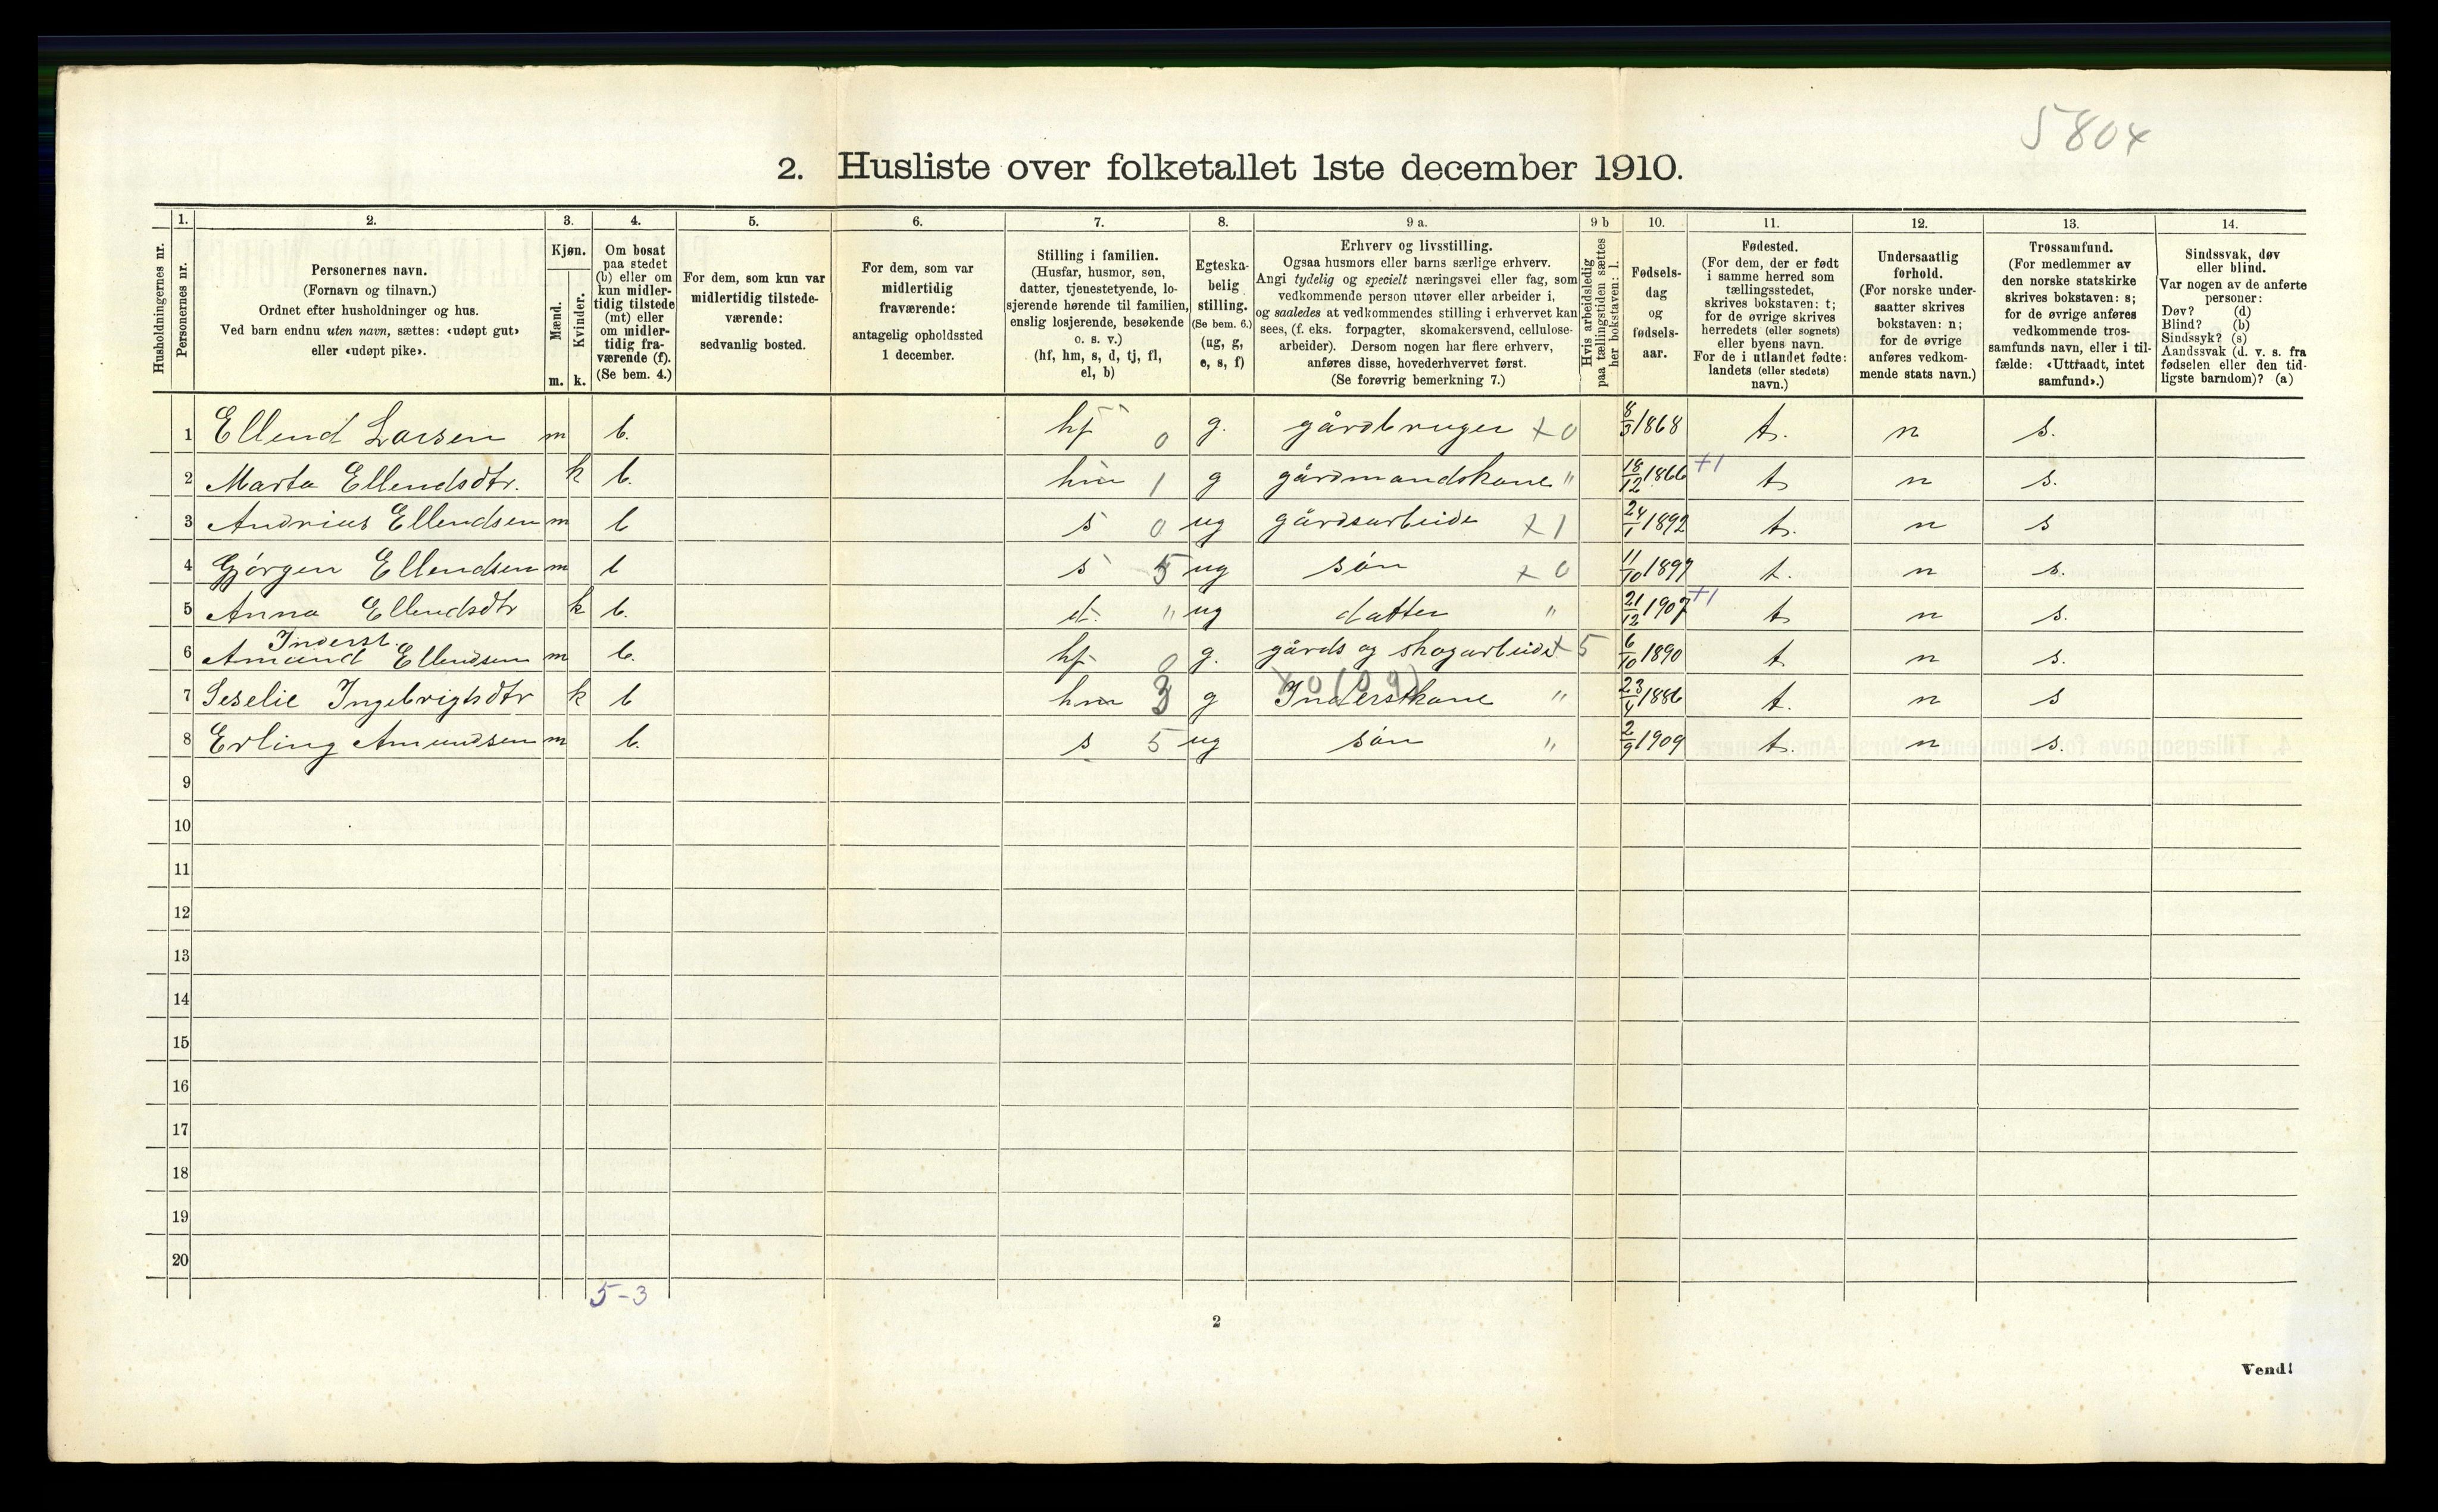 5804
2. Husliste over folketallet 1ste december 1910.
Husholdningernes nr.
1.
Personernes nr.
2.
Personernes navn.
(Fornavn og tilnavn.)
Ordnet efter husholdninger og hus.
Ved barn endnu uten navn, sættes: «udøpt gut»
eller «udøpt pike».
3.
Kjøn.
Mænd.
Kvinder.
m. k.
4.
Om bosat
paa stedet
(b) eller om
kun midler-
tidig tilstede
(mt) eller
om midler-
tidig fra-
værende (f).
(Se bem. 4.)
5.
For dem, som kun var
midlertidig tilstede-
værende:
sedvanlig bosted.
6.
For dem, som var
midlertidig
fraværende:
antagelig opholdssted
1 december.
7.
Stilling i familien.
(Husfar, husmor, søn,
datter, tjenestetyende, lo-
sjerende hørende til familien,
enslig losjerende, besøkende
o. s. v.)
(hf, hm, s, d, tj, fl,
el, b)
8.
Egteska-
belig
stilling.
(Se bem. 6.)
(ug, g,
e, s, f)
9 a.
Erhverv og livsstilling.
Ogsaa husmors eller barns særlige erhverv.
Angi tydelig og specielt næringsvei eller fag, som
vedkommende person utøver eller arbeider i,
og saaledes at vedkommendes stilling i erhvervet kan
sees, (f. eks. forpagter, skomakersvend, cellulose-
arbeider). Dersom nogen har flere erhverv,
anføres disse, hovederhvervet først.
(Se forøvrig bemerkning 7.)
9 b
Hvis arbeidsledig
paa tællingstiden sættes
her bokstaven: l.
10.
Fødsels-
dag
og
fødsels-
aar.
11.
Fødested.
(For dem, der er født
i samme herred som
tællingsstedet,
skrives bokstaven: t;
for de øvrige skrives
herredets (eller sognets)
eller byens navn.
For de i utlandet fødte:
landets (eller stedets)
navn.)
12.
Undersaatlig
forhold.
(For norske under-
saatter skrives
bokstaven: n;
for de øvrige
anføres vedkom-
mende stats navn.)
13.
Trossamfund.
(For medlemmer av
den norske statskirke
skrives bokstaven: s;
for de øvrige anføres
vedkommende tros-
samfunds navn, eller i til-
fælde: «Uttraadt, intet
samfund».)
14.
Sindssvak, døv
eller blind.
Var nogen av de anførte
personer:
Døv? (d)
Blind? (b)
Sindssyk? (s)
Aandssvak (d. v. s. fra
fødselen eller den tid-
ligste barndom)? (a)
1 Ellend Larsen m b. hf 0 g. gårdbruger x0 8/3 1868 t. n s.
2 Marta Ellendsdtr. k b. hm 1 g gårdmandskone " 18/12 1866 +1 t n s.
3 Andrius Ellendsen m b s 0 ug gårdsarbeide x1 24/1 1892 t. n s
4 Gjørgen Ellendsen m b s 5 ug søn x0 11/10 1897 t. n s.
5 Anna Ellendsdtr k b. d. " ug datter " 21/12 1907 +1 t n s.
Inderst.
6 Amund Ellendsen m b. hf 0 g. gårds og skogarbeide x5 6/10 1890 t n s.
x0 (09)
7 Seselie Ingebrigtsdtr k b hm 3 g Inderstkone " 23/4 1886 t. n s
8 Erling Amundsen m b. s 5 ug søn " 2/9 1909 t. n s.
9
10
11
12
13
14
15
16
17
18
19
20
5-3
2
Vend!